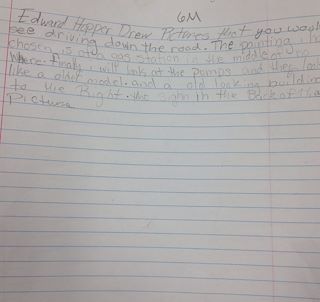 6M
Edward Hopper Drew Pictures that you would
see driving down the road. The painting I
chosen is of a gas station in the middle of no
Where. Finally I will look at the pumps and they look
like a older model. and a old looking building
to the Right. the sighn in the Back of the
Picture